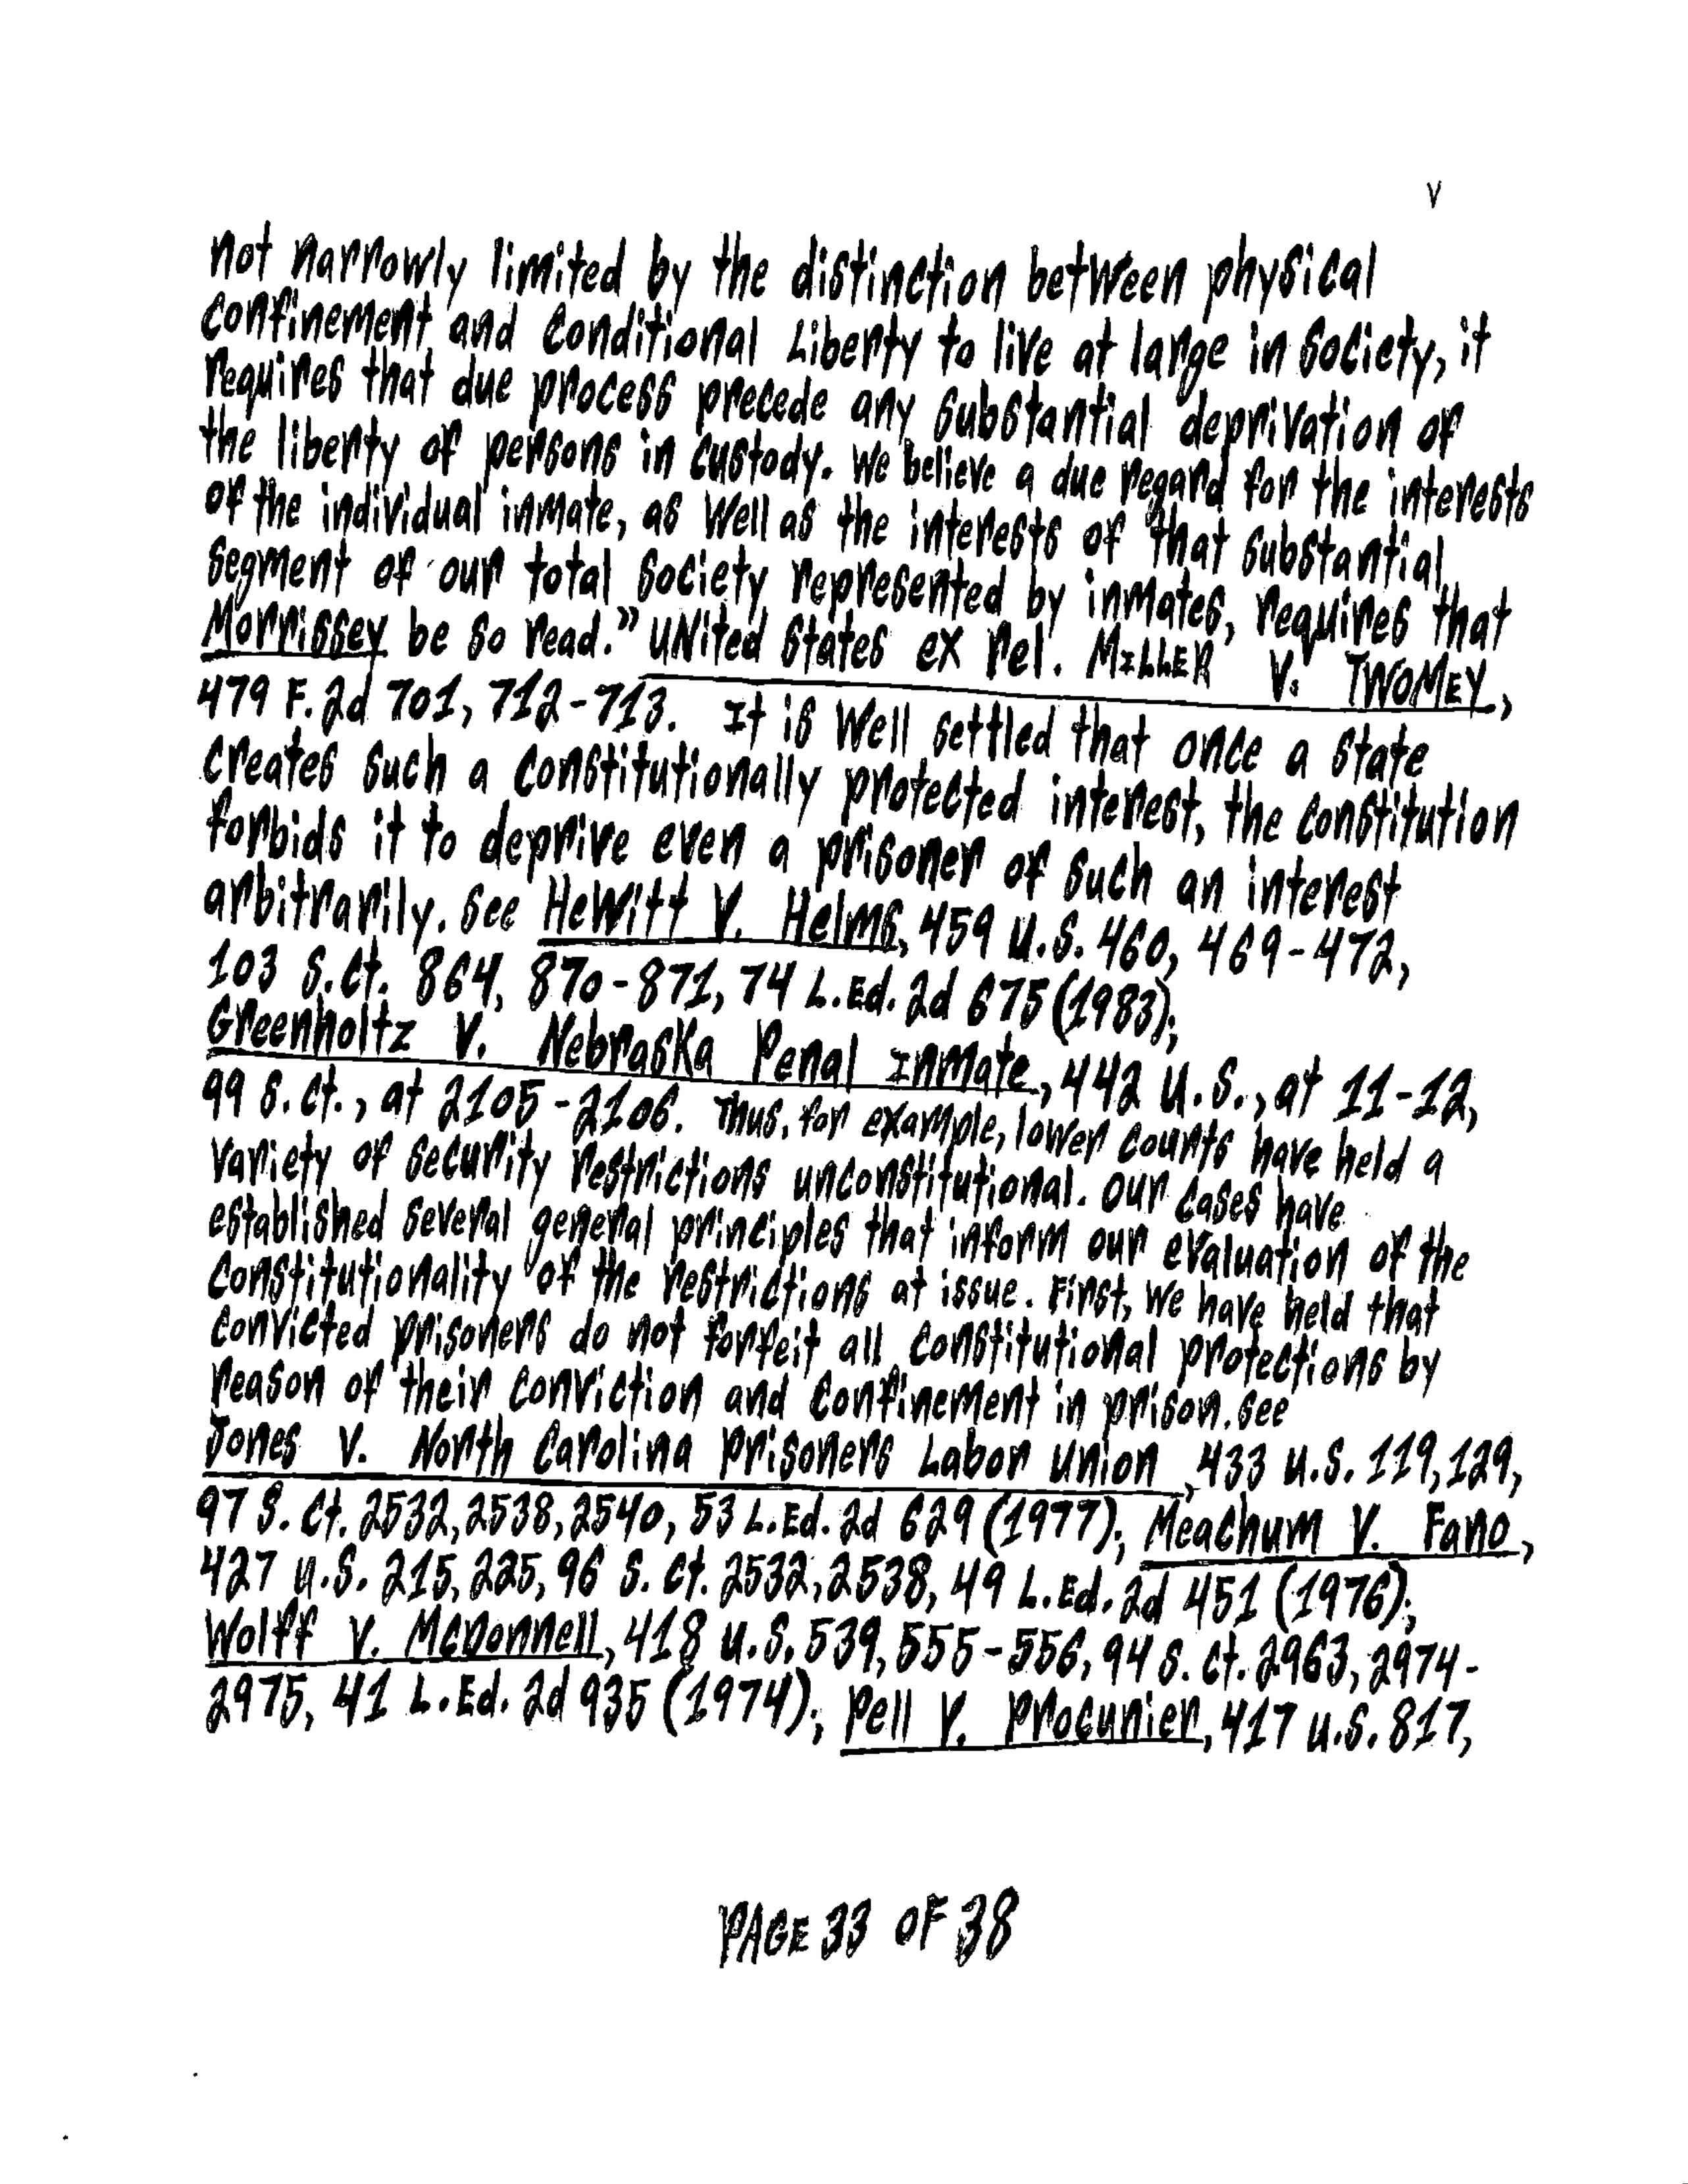 v
not narrowly limited by the distinction between physical
confinement and conditional Liberty to live at large in society, it
requires that due process precede any substantial deprivation of
the liberty of persons in custody. We believe a due regard for the interests
of the individual inmate, as well as the interests of that substantial
segment of our total society represented by inmates, requires that
Morrissey be so read." UNited States ex rel. MILLER V. TWOMEY,
479 F.2d 701, 712-713. It is well settled that once a state
creates such a constitutionally protected interest, the constitution
forbids it to deprive even a prisoner of such an interest
arbitrarily. See Hewitt V. Helms, 459 U.S. 460, 469-472,
103 S.Ct. 864, 870-871, 74 L.Ed. 2d 675 (1983);
Greenholtz V. Nebraska Penal Inmate, 442 U.S., at 11-12,
99 S.Ct., at 2105-2106. Thus, for example, lower courts have held a
variety of security restrictions unconstitutional. Our cases have
established several general principles that inform our evaluation of the
constitutionality of the restrictions at issue. First, we have held that
convicted prisoners do not forfeit all constitutional protections by
reason of their conviction and confinement in prison. See
Jones V. North Carolina Prisoners Labor Union, 433 U.S. 119, 129,
97 S. Ct. 2532, 2538, 2540, 53 L.Ed. 2d 629 (1977); Meachum V. Fano,
427 U.S. 215, 225, 96 S. Ct. 2532, 2538, 49 L.Ed. 2d 451 (1976);
Wolff V. McDonnell, 418 U.S. 539, 555-556, 94 S. Ct. 2963, 2974-
2975, 41 L.Ed. 2d 935 (1974); Pell V. Procunier, 417 U.S. 817,
PAGE 33 OF 38